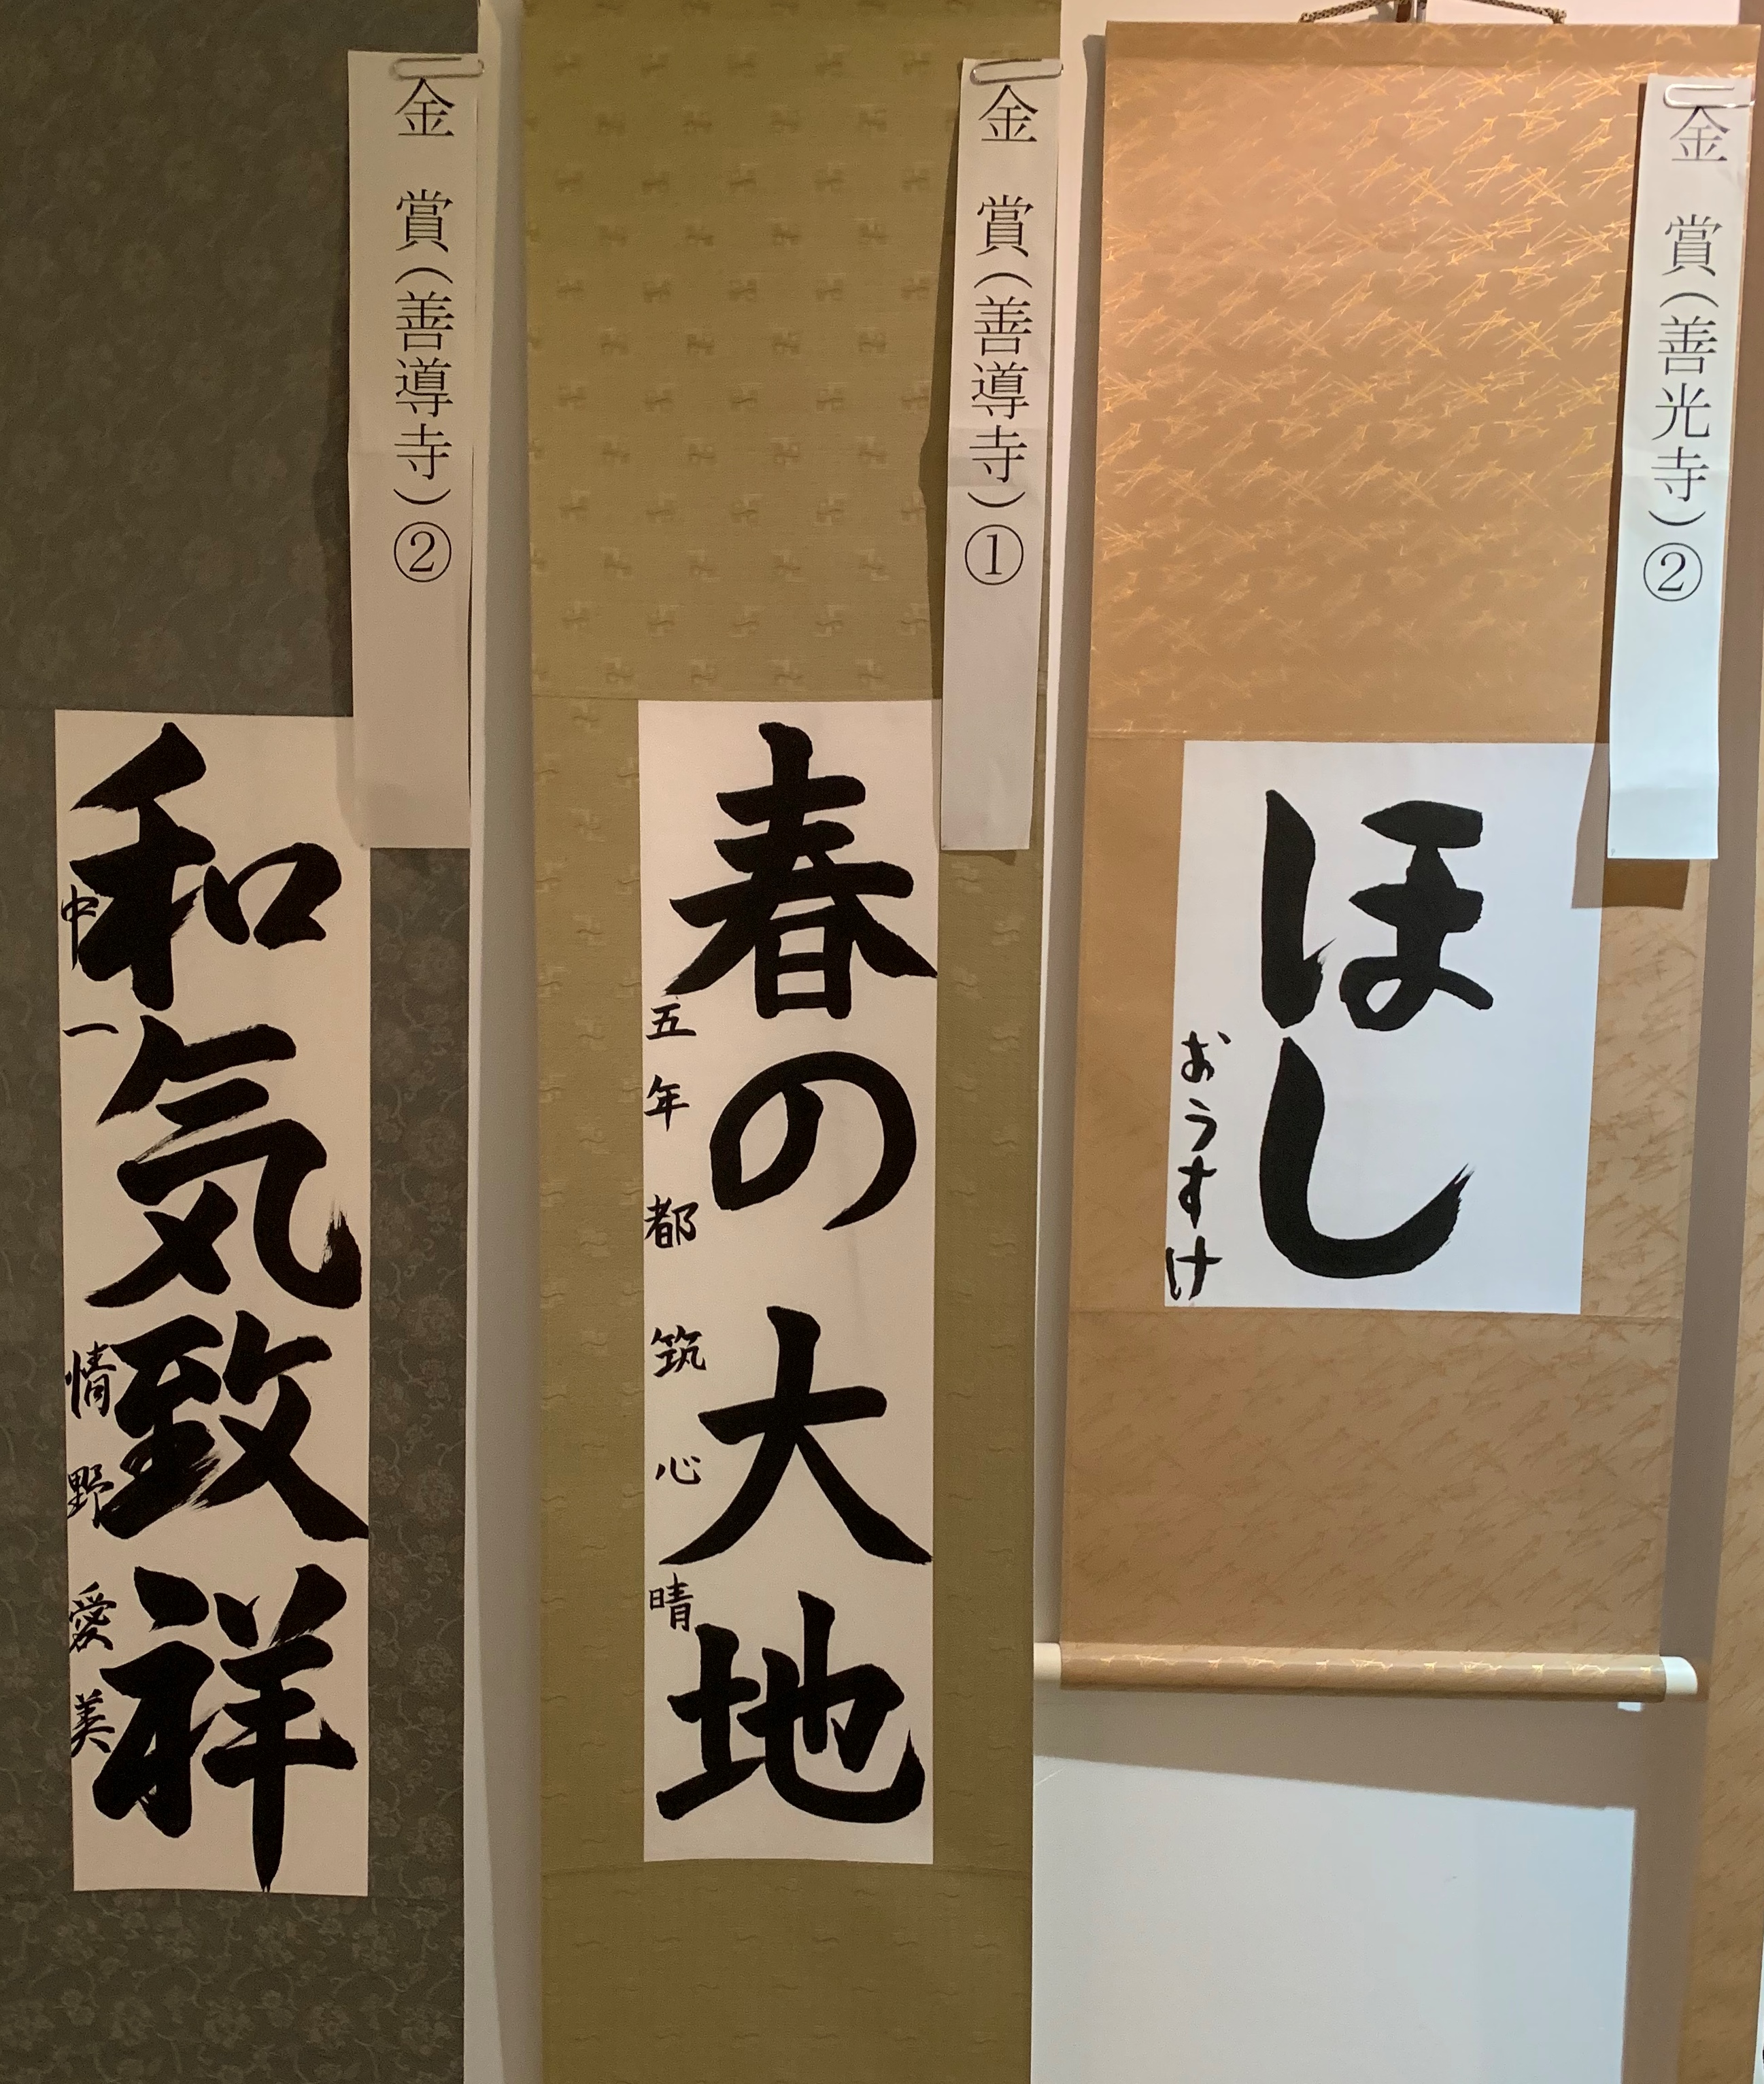 金賞（善光寺）②
ほし
おうすけ
金賞（善導寺）①
春の大地
五年都筑心晴
金賞（善導寺）②
和気致祥
中一情野愛美